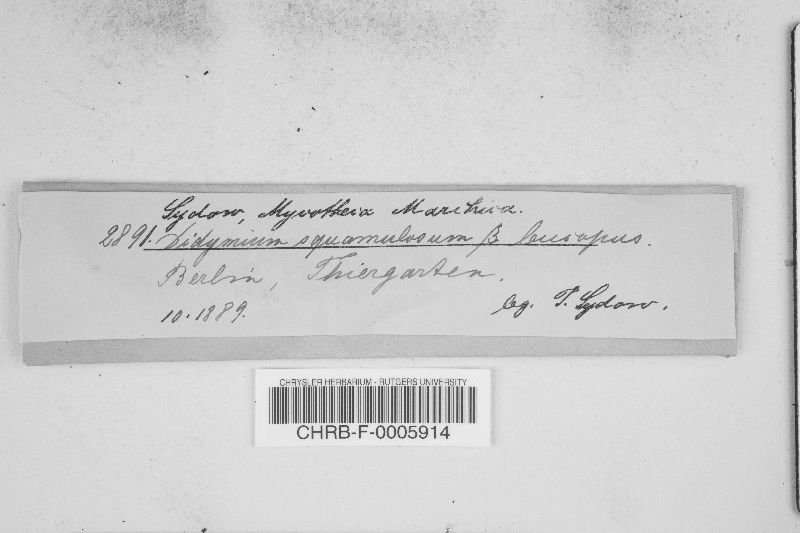 Sydow, Mycotheca Marchica.
2891. Didymium squamulosum β leucopus.
Berlin, Thiergarten.
10. 1889.
leg. P. Sydow.
CHRYSLER HERBARIUM - RUTGERS UNIVERSITY
CHRB-F-0005914